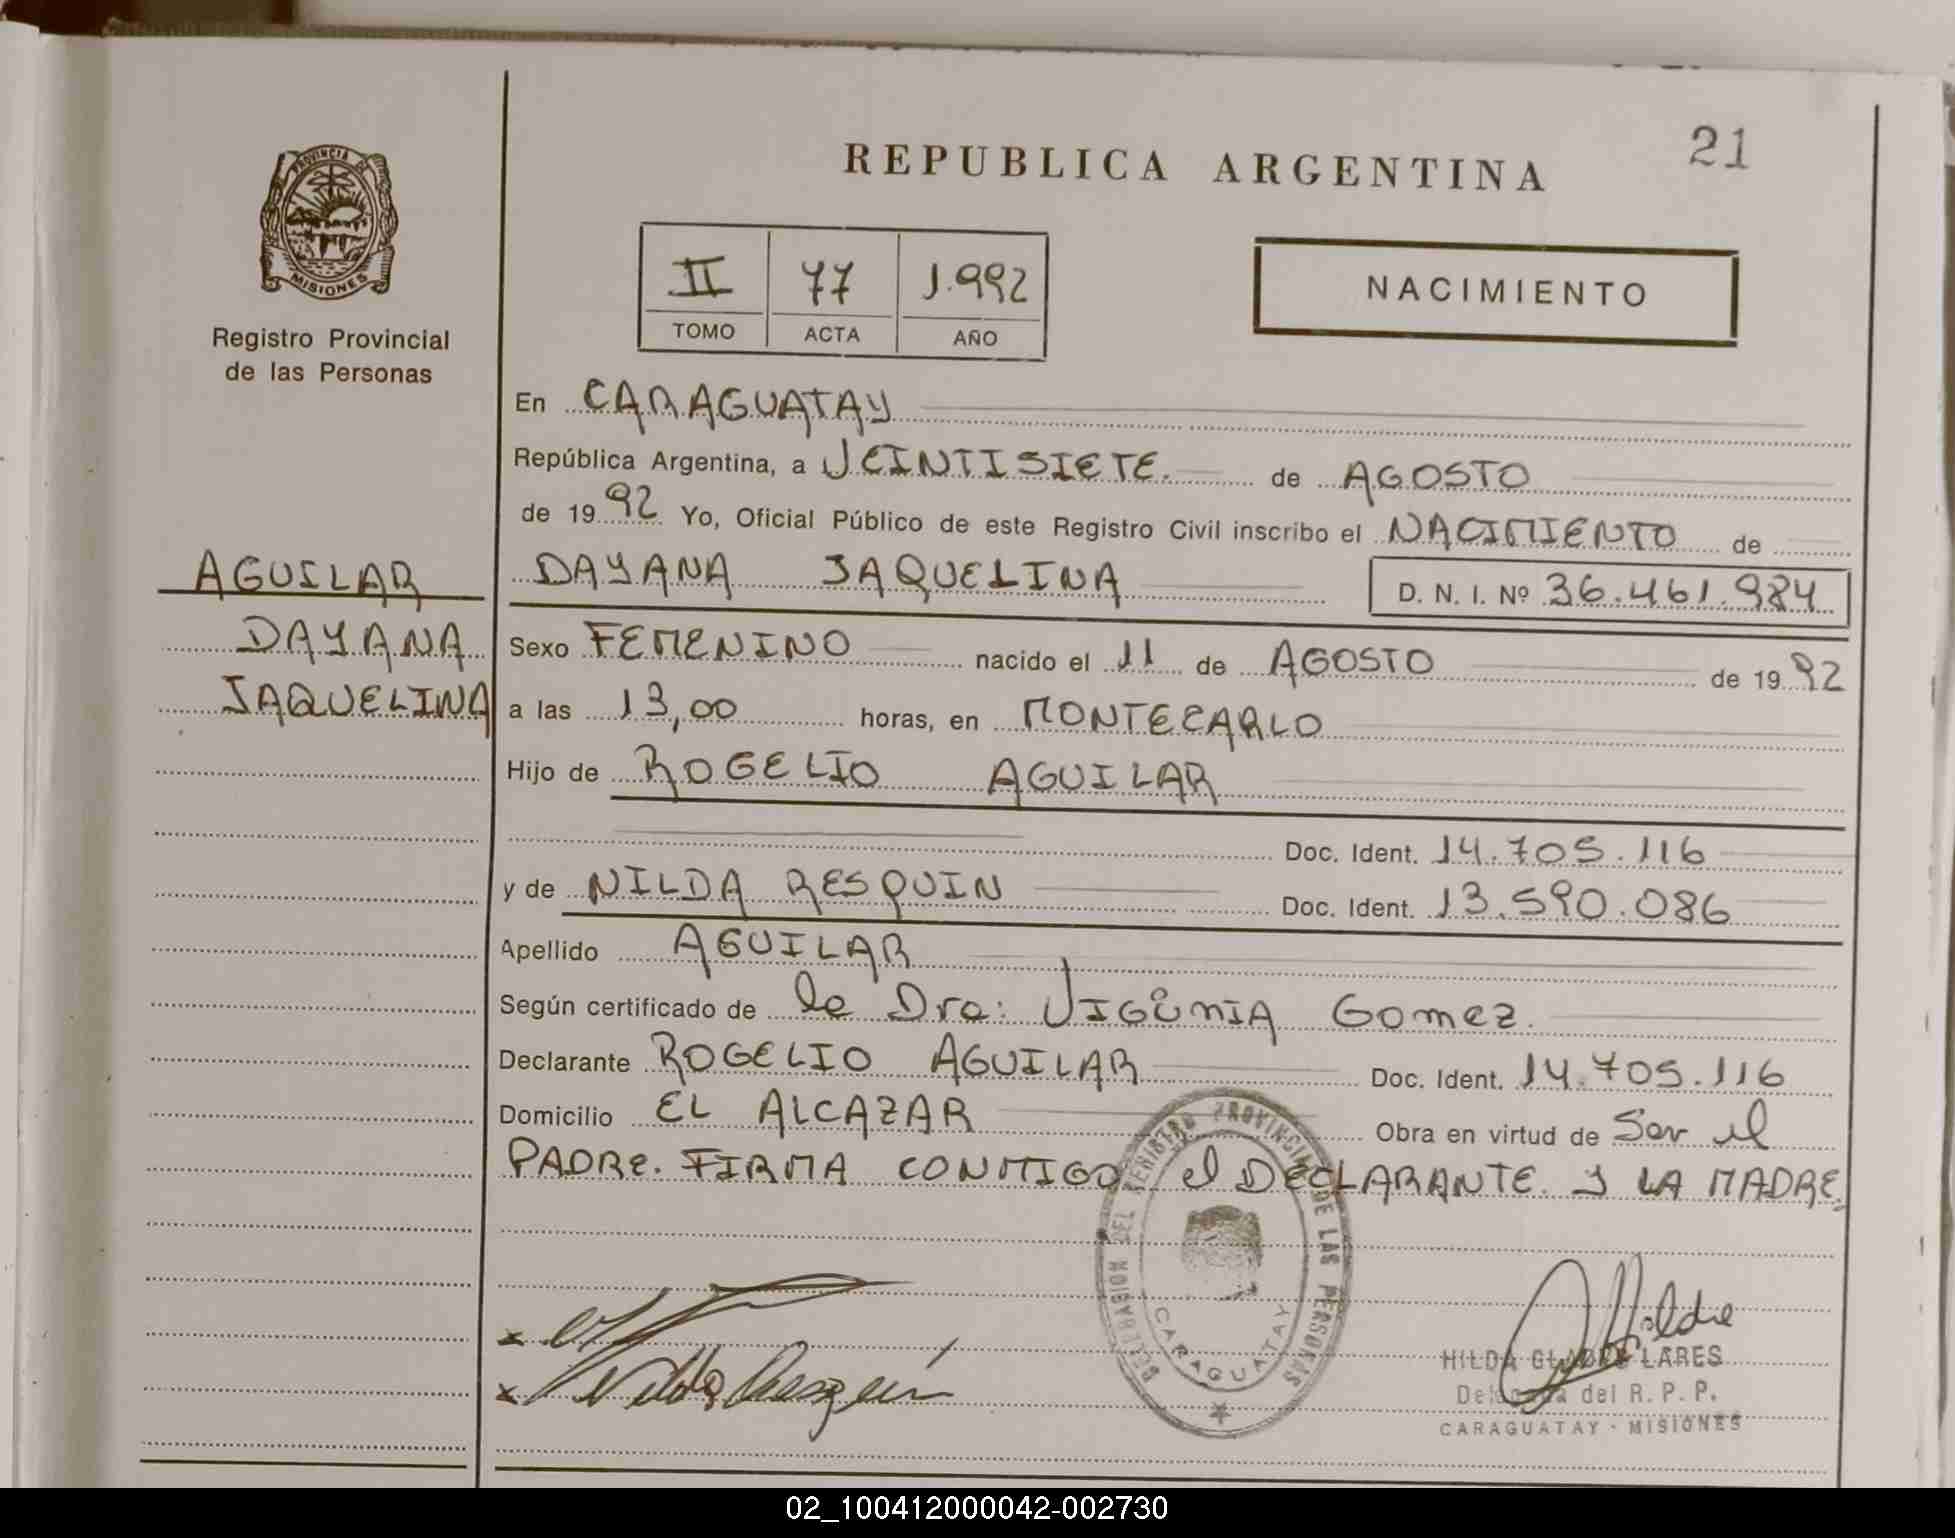 21
REPUBLICA ARGENTINA
PROVINCIA DE
MISIONES
Registro Provincial
de las Personas
II 77 1.992
TOMO ACTA AÑO
NACIMIENTO
En CARAGUATAY
República Argentina, a VEINTISIETE. de AGOSTO
de 1992 Yo, Oficial Público de este Registro Civil inscribo el NACIMIENTO de
AGUILAR
DAYANA JAQUELINA D. N. I. Nº 36.461.984
DAYANA
Sexo FEMENINO nacido el 11 de AGOSTO de 1992
JAQUELINA
a las 13,00 horas, en MONTECARLO
Hijo de ROGELIO AGUILAR
Doc. Ident. 14.705.116
y de NILDA RESQUIN Doc. Ident. 13.590.086
Apellido AGUILAR
Según certificado de la Dra: Gomez.
Declarante ROGELIO AGUILAR Doc. Ident. 14.705.116
Domicilio EL ALCAZAR Obra en virtud de Ser el
PADRE. FIRMA CONMIGO el DECLARANTE. Y LA MADRE.
DELEGACION DEL REGISTRO PROVINCIAL DE LAS PERSONAS
CARAGUATAY
Nilda Resquin
HILDA LARES
Delegada del R. P. P.
CARAGUATAY - MISIONES
02_100412000042-002730